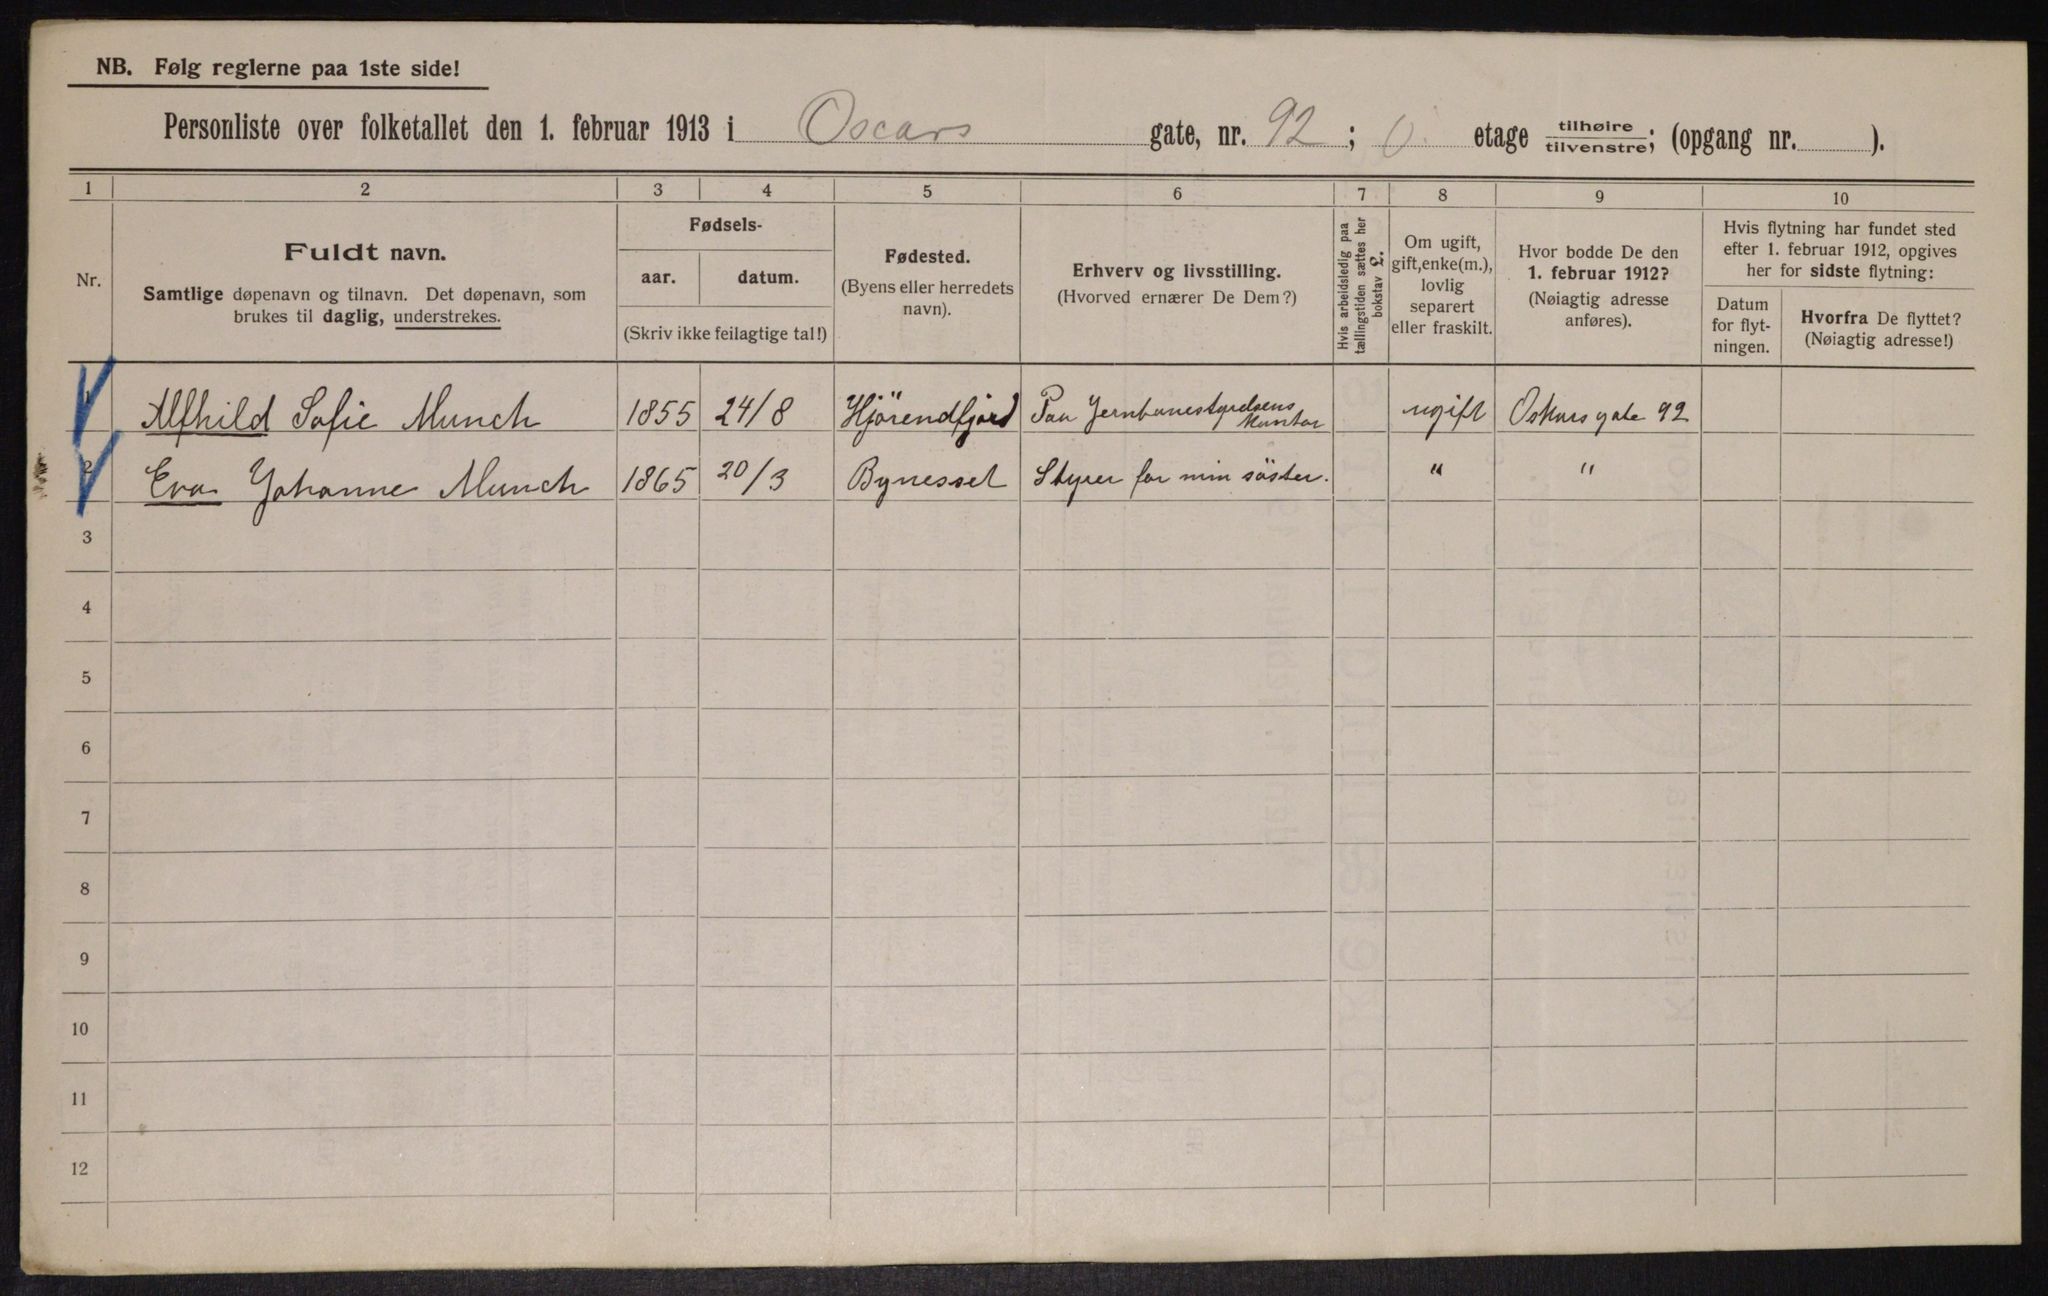 NB. Følg reglerne paa 1ste side!
Personliste over folketallet den 1. februar 1913 i Oscars gate, nr. 92; 0. etage tilhøire tilvenstre; (opgang nr. ).
1 2 3 4 5 6 7 8 9 10
Nr.
Fuldt navn.
Samtlige døpenavn og tilnavn. Det døpenavn, som
brukes til daglig, understrekes.
Fødsels-
aar. datum.
(Skriv ikke feilagtige tal!)
Fødested.
(Byens eller herredets
navn).
Erhverv og livsstilling.
(Hvorved ernærer De Dem?)
Hvis arbeidsledig paa
tællingstiden sættes her
bokstav L.
Om ugift,
gift, enke(m.),
lovlig
separert
eller fraskilt.
Hvor bodde De den
1. februar 1912?
(Nøiagtig adresse
anføres).
Hvis flytning har fundet sted
efter 1. februar 1912, opgives
her for sidste flytning:
Datum
for flyt-
ningen.
Hvorfra De flyttet?
(Nøiagtig adresse!)
1 Alfhild Sofie Munch 1855 24/8 Hjörendfjord Paa Jernbanestyrelsens Kontor ugift Oskars gate 92
2 Eva Johanne Munch 1865 20/3 Bynesset Styrer for min söster. " "
3
4
5
6
7
8
9
10
11
12